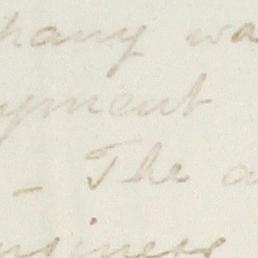 pany wa
yment
- The a
usiness